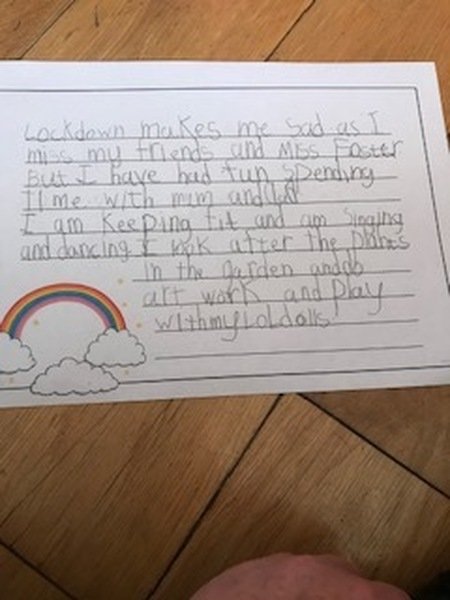 Lockdown makes me sad as I
miss my friends and Miss Foster
But I have had fun spending
time with mum and
I am keeping fit and am singing
and dancing I look after the plants
in the garden and do
art work and play
with my Lol dolls